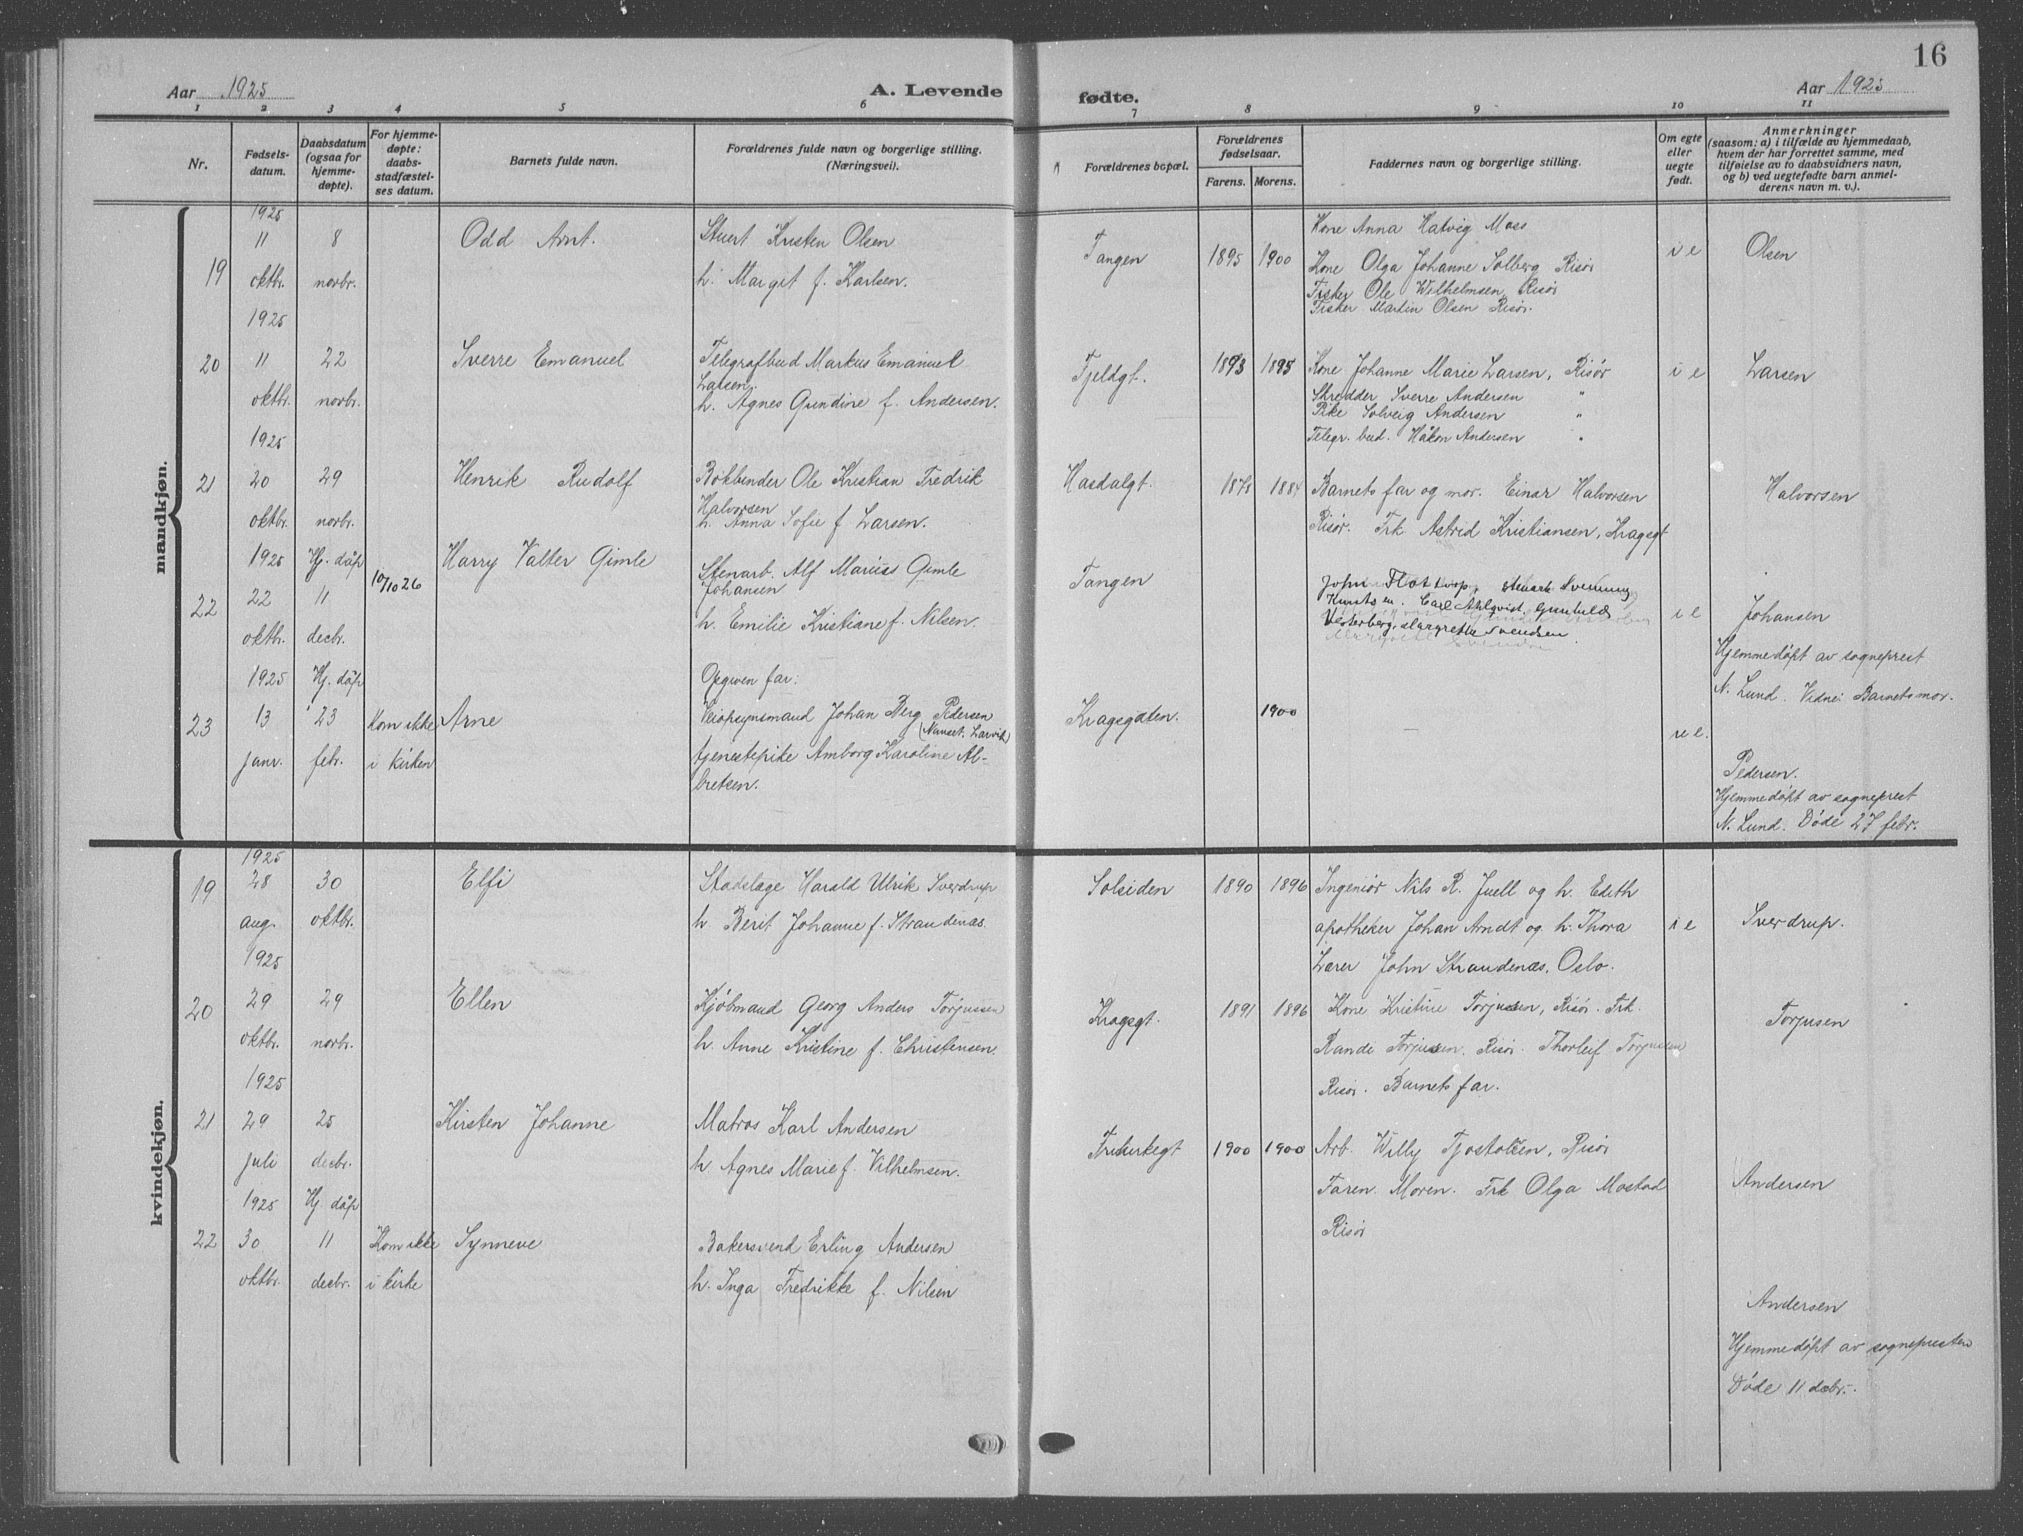 16
Aar 1925
A. Levende fødte.
Aar 1925
1 2 3 4 5 6 7 8 9 10 11
Nr.
Fødsels-
datum.
Daabsdatum
(ogsaa for
hjemme-
døpte).
For hjemme-
døpte:
daabs-
stadfæstel-
ses datum.
Barnets fulde navn.
Forældrenes fulde navn og borgerlige stilling.
(Næringsvei).
Forældrenes bopæl.
Forældrenes
fødselsaar.
Farens. Morens.
Faddernes navn og borgerlige stilling.
Om egte
eller
uegte
født.
Anmerkninger
(saasom: a) i tilfælde av hjemmedaab,
hvem der har forrettet samme, med
tilføielse av to daabsvidners navn,
og b) ved uegtefødte barn anmel-
derens navn m. v.).
mandkjøn.
19
1925
11
oktbr.
8
novbr.
Odd Arnt.
Stuert Kristen Olsen
h. Margit f. Karlsen.
Tangen
1895 1900
Kone Anna Hatvig Moss
Kone Olga Johanne Solberg Risör
Fisker Ole Wilhelmsen Risör
Fisker Martin Olsen Risör.
i e
Olsen
20
1925
11
oktbr.
22
novbr.
Sverre Emanuel
Telegrafbud Markus Emanuel
Larsen.
h. Agnes Gundine f. Andersen.
Fjeldgt.
1893 1895
Kone Johanne Marie Larsen, Risör
Skredder Sverre Andersen "
Pike Solveig Andersen "
Telegr. bud. Håkon Andersen "
i e
Larsen
21
1925
20
oktbr.
29
novbr.
Henrik Rudolf
Bokbinder Ole Kristian Fredrik
Halvorsen
h. Anna Sofie f. Larsen.
Hasdalgt.
1878 1884
Barnets far og mor. Einar Halvorsen
Risör. Frk Astrid Kristiansen, Kragsgt
Halvorsen
22
1925
22
oktbr.
Hj. døp
11
decbr.
10/10 26
Harry Valter Gimle
Stenarb. Alf Marius Gimle
Johansen
h. Emilie Kristiane f. Nilsen.
Tangen
John Flottorp, Svenning
Knutsen. Carl Ahlqvist, Gunhild
Vesterberg, Margrethe Svendsen.
i e
Johansen
Hjemmedöpt av sogneprest
N. Lund. Vidne: Barnets mor.
23
1925
13
janr.
Hj. döp
23
febr.
Kom ikke
i kirken
Arne
Opgiven far:
Veiopsynsmand Johan Berg Pedersen
(Nanset. Larvik)
tjenestepike Amborg Karoline Al-
bretsen.
Kragsgaten.
1900
u e.
Pedersen.
Hjemmedöpt av sogneprest
N. Lund. Döde 27 febr.
kvindekjøn.
19
1925
28
aug.
30
oktbr.
Elfi
Stadslæge Harald Ulrik Sverdrup
h Berit Johanne f. Strandenæs.
Solsiden
1890 1896
Ingeniör Nils R. Juell og h. Edith
apotheker Johan Arndt og h. Thora
Lærer John Strandenæs, Oslo.
i e
Sverdrup.
20
1925
29
oktbr.
29
novbr.
Ellen
Kjöbmand Georg Anders Torjussen
h. Anne Kristine f. Christensen.
Kragsgt.
1891 1896
Kone Kristine Torjusen, Risör. Frk.
Randi Torjusen. Risör. Thorleif Torjusen
Risör. Barnets far.
Torjusen
21
1925
29
juli
25
decbr.
Kirsten Johanne
Matros Karl Andersen
h. Agnes Marie f. Vilhelmsen.
1900 1900
Arb. Willy Tjostolsen, Risör
Faren. Moren. Frk Olga Mostad
Risör
Andersen
22
1925
30
oktbr.
Hj. döp
11
decbr.
Kom ikke
i kirke
Synneve
Bakersvend Erling Andersen
h. Inga Fredrikke f. Nilsen
Andersen
Hjemmedöpt av sognepresten
Döde 11 decbr.